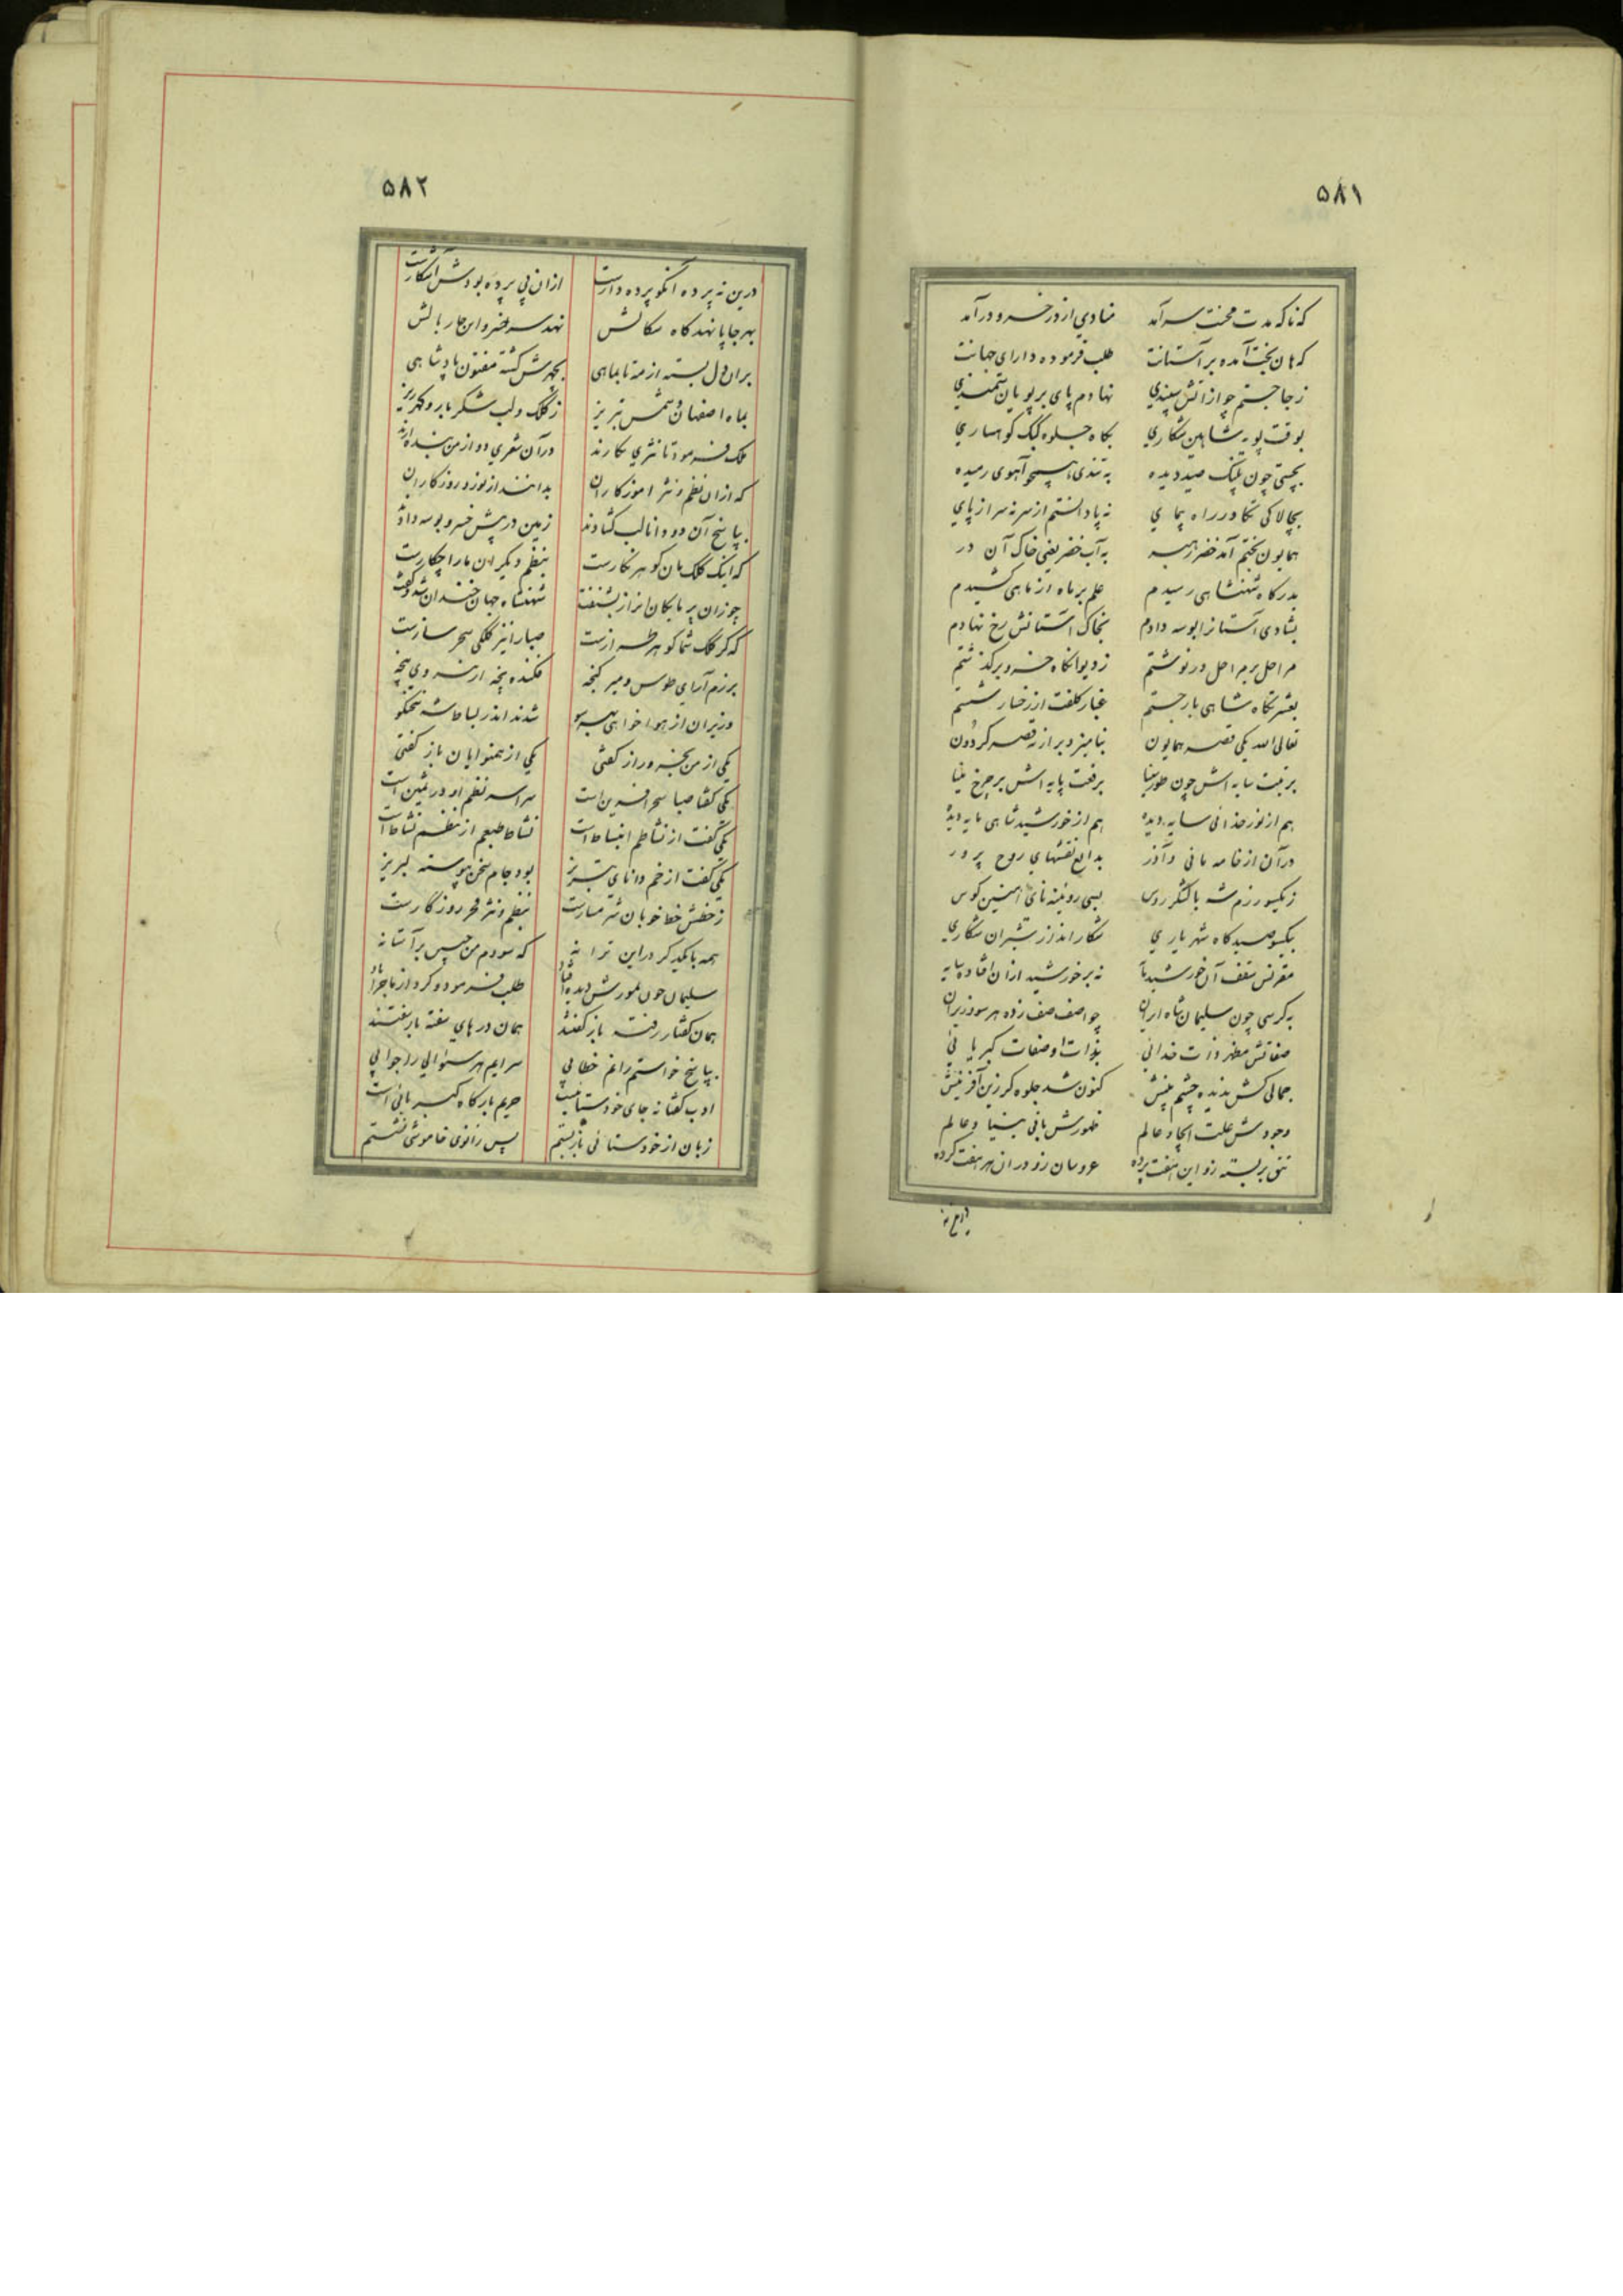 ۵۸۱
که ناکه مدت محنت سرآمد منادی از در خسرو درآمد
که هان بخت آمده بر آستانت طلب فرموده دارای جهانت
ز جا جستم چو از آتش سپندی نهادم پای بر پویان سمندی
بوقت پویه شاهین شکاری بکاه جلوه کبک کوهساری
بچستی چون پلنک صید دیده به تندی همچو آهوی رمیده
بچالاکی تکاور راه پیمای نه پا دانستم از سر نه سر از پای
همایون بختم آمد خضر رهبر به آب خضر یعنی خاک آن در
بدرکاه شهنشاهی رسیدم علم بر ماه از ماهی کشیدم
بشادی آستانرا بوسه دادم بخاک آستانش رخ نهادم
مراحل بر مراحل در نوشتم ز دیوانکاه خسرو برکذشتم
بعشرتکاه شاهی بار جستم غبار کلفت از رخسار شستم
تعالی الله یکی قصر همایون بنامیزد بر از نه قصر کردون
برتبت سایه اش چون طور سینا برفعت پایه اش بر چرخ مینا
هم از نور خدائی سایه دیده هم از خورشید شاهی مایه دیده
در آن از خامه مانی و آذر بدایع نقشهای روح پرور
ز یکسو رزم شه با لشکر روس بسی روئینه نای آهنین کوس
بیکسو صیدکاه شهریاری شکار انداز شیران شکاری
مقرنس سقف آن خورشید نه بر خورشید ازان افتاده سایه
به کرسی چون سلیمان شاه ایران چو اصف صف زده هر سو وزیران
صفاتش مظهر ذات خدائی بذات اوصفات کبریائی
جمالی کش ندیده چشم بینش کنون شد جلوه کر زین آفرینش
وجودش علت ایجاد عالم ظهورش بانی بنیاد عالم
تتق بر بسته زو این هفت پرده عروسان زو در ان هر هفت کرده
درین نه
۵۸۲
درین نه پرده آنکو پرده دارست ازان بی پرده بودش آشکارست
بهر جا پا نهد کاه سکالش نهد سر خسروان چار بالش
بران دل بسته از مه تا بماهی بچهرش کشته مفتون پادشاهی
بماه اصفهان و شمس تبریز ز کلک و لب شکربار و کهرریز
ملک فرمود تا نثری نکارند در آن شعری دو از من بنده آرند
که ازان نظم و نثر اموزکاران بدانند از نوزد روزکاران
بپاسخ آن دو دانا لب کشادند زمین در پیش خسرو بوسه دادند
که اینک کلک مان کوهر نکارست بنظم دیکران ما را چکارست
چو زان پرمایکان این راز بشنفت شهنشاه جهان خندان شد و کفت
که کر کلک شما کوهر طرازست صبا را نیز کلکی سحرسازست
برزم آرای طوس و میر کنجه فکنده پنجه از نیروی پنجه
وزیران از هواخواهی ز هر سو شدند اندر بساط شه سخنکو
یکی از من بخسرو راز کفتی یکی از همنوایان باز کفتی
یکی کفتا صبا سحر آفرین است سراسر نظم او در ثمین است
یکی کفت از نشاطم انبساط است نشاط طبعم از نظم نشاط است
یکی کفت از خم دانای تبریز بود جام سخن پیوسته لبریز
ز خطش خط خوبان شرمسارست بنظم و نثر فخر روزکارست
همه با یکدیکر در این ترانه که سودم من جبین بر آستانه
سلیمان چون بمورش دیده افتاد طلب فرمود و کرد از ماجرا یاد
همان کفتار رفته باز کفتند همان درهای سفته باز سفتند
بپاسخ خواستم رانم خطابی سرایم هر سئوالی را جوابی
ادب کفتا نه جای خودستائیست حریم بارکاه کبریائی است
زبان از خودستائی باز بستم پس زانوی خاموشی نشستم